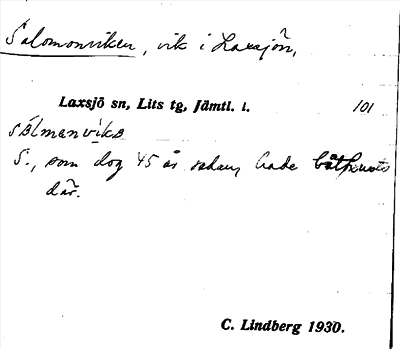 Salomonviken, vik i Laxsjön,
Laxsjö sn, Lits tg, Jämtl. l. 101
sälmanvika
S., som dog 45 år sedan, hade båthus
där.
C. Lindberg 1930.